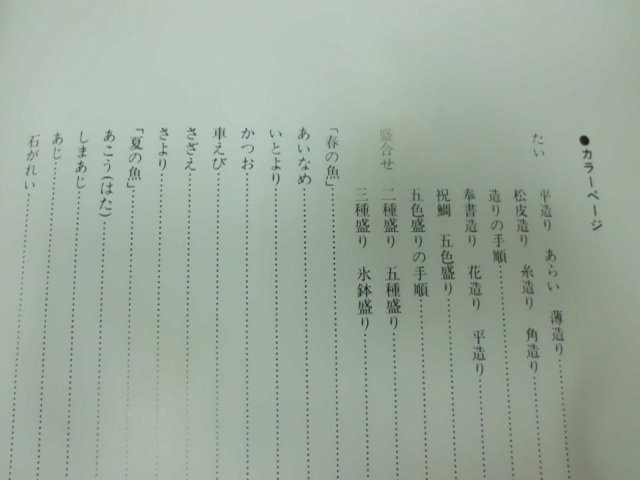 ●カラーページ
たい 平造り あらい 薄造り
松皮造り 糸造り 角造り
造りの手順
奉書造り 花造り 平造り
祝鯛 五色盛り
五色盛りの手順
盛合せ 二種盛り 五種盛り
三種盛り 氷鉢盛り
「春の魚」
あいなめ
いとより
かつお
車えび
さざえ
さより
「夏の魚」
あこう(はた)
しまあじ
あじ
石がれい